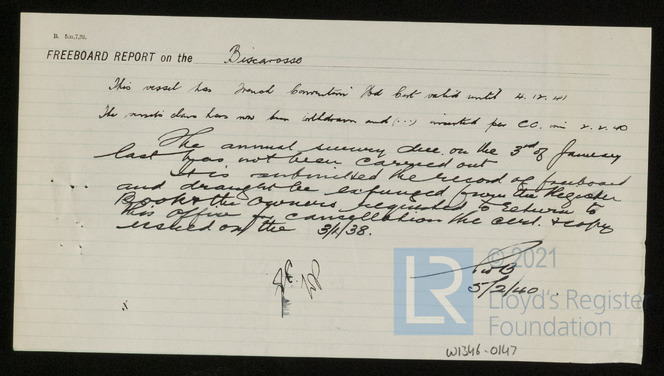 FREEBOARD REPORT on the Biscarosse
This vessel has French Convention Fbd Cert valid until 4.12.41
The vessels class has now been withdrawn and (...) inserted per CC. min 2.2.40
The annual survey due on the 3rd of January
last has not been carried out
It is submitted the record of freeboard
and draught be expunged from the Register
Book & the Owners requested to return to
this Office for cancellation the cert. & copy
issued on the 3/1/38.
5/2/40
© 2021
LR
Lloyd's Register
Foundation
W1346-0147